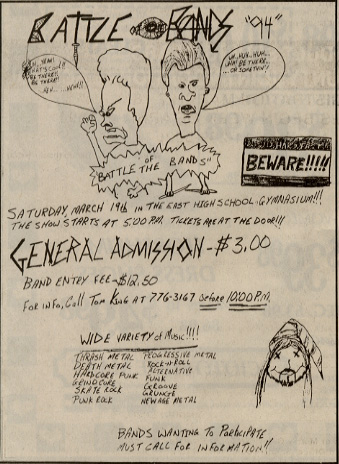 BATTLE OF BANDS "94"
YEAH
THAT'S COOL!!
BE THERE!
BE THERE!
UH, HUH, HUH..
UHH! BE THERE..
..OR SOMETHIN'!
BATTLE OF THE BANDS"
BEWARE!!!!!
SATURDAY, MARCH 19th IN THE EAST HIGH SCHOOL GYMNASIUM!!!
THE SHOW STARTS AT 5:00 P.M. TICKETS ARE AT THE DOOR!!!
GENERAL ADMISSION-$3.00
BAND ENTRY FEE-$12.50
FOR INFO, CALL TOM KING AT 776-3167 Before 10:00 P.M.
WIDE VARIETY of Music!!!!
THRASH METAL PROGRESSIVE METAL
DEATH METAL ROCK-N-ROLL
HARDCORE PUNK ALTERNATIVE
GRINDCORE FUNK
SKATE ROCK GROOVE
PUNK ROCK GRUNGE
NEWAGE METAL
BANDS WANTING TO PARTICIPATE
MUST CALL FOR INFORMATION!!